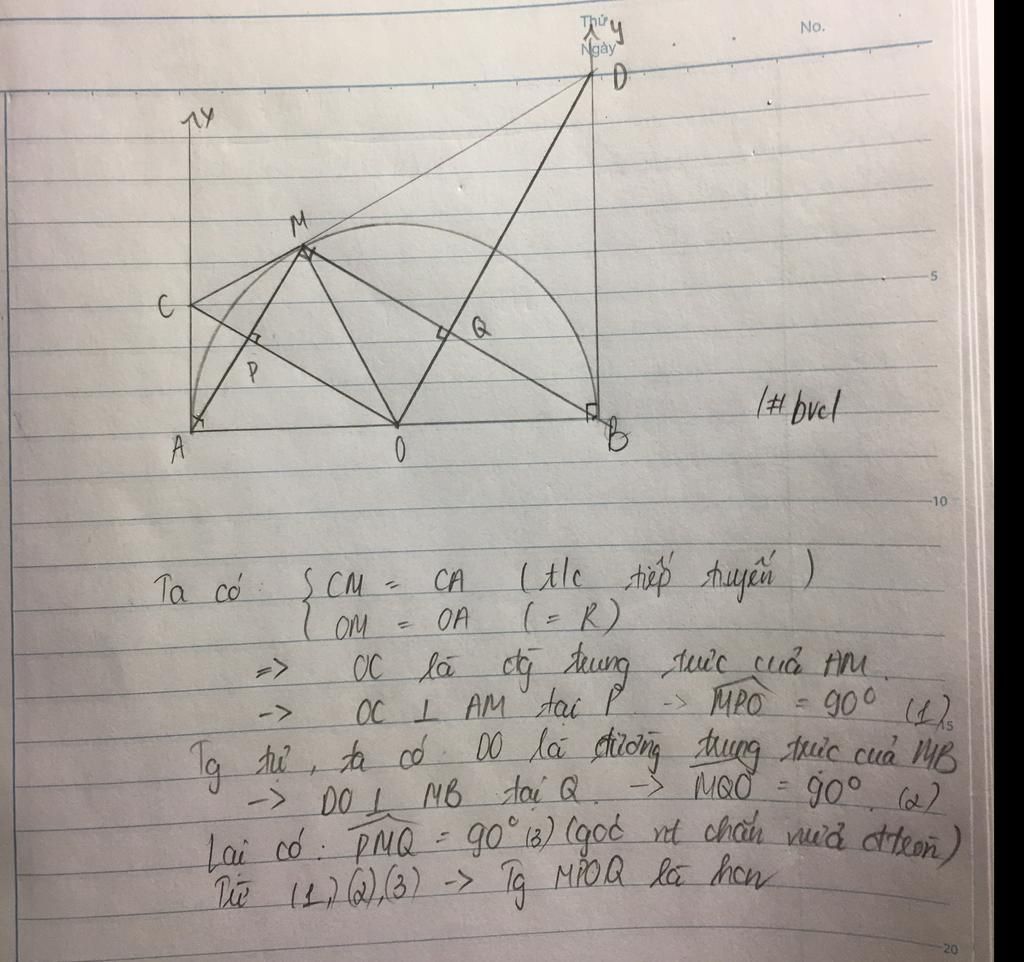 Thứ
Ngày
No.
y
D
x
M
C
Q
P
A
O
B
5
/# bvcl
10
Ta có: { CM = CA (t/c tiếp tuyến)
OM = OA (= R)
=> OC là đg trung trực cuả AM.
-> OC ⊥ AM tại P -> MPO = 90° (1)
Tg tự, ta có DO là đường trung trực cuả MB
-> DO ⊥ MB tại Q. -> MQO = 90°. (2)
Lại có: PMQ = 90° (3) (góc nt chắn nửa đtròn)
Từ (1), (2), (3) -> Tg MPOQ là hcn
20